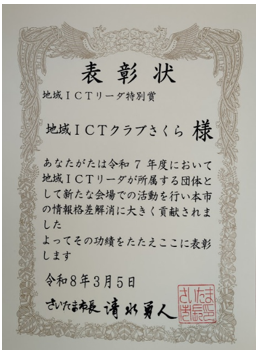 表彰状
地域ICTリーダ特別賞
地域ICTクラブさくら 様
あなたがたは令和7年度において
地域ICTリーダが所属する団体と
して新たな会場での活動を行い本市
の情報格差解消に大きく貢献されま
した
よってその功績をたたえここに表彰
します
令和8年3月5日
さいたま市長 清水勇人